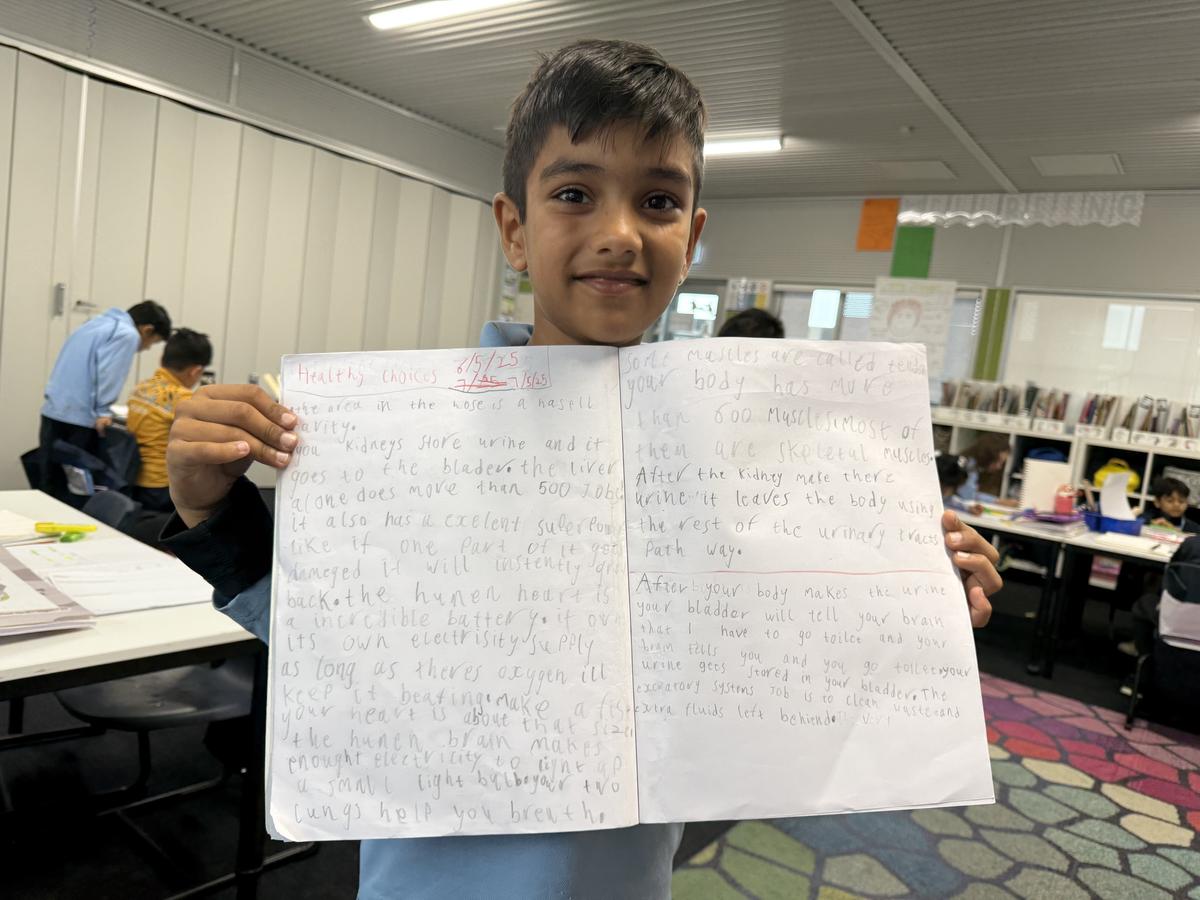 Healthy choices 6/5/25
7/5/25 7/5/25
the area in the nose is a nasell
cavity.
you kidneys store urine and it
goes to the blader. the liver
alone does more than 500 Jobs
it also has a exelent superpower
like if one part of it gets
dameged it will instently grow
back. the humen heart is
a incredible battery. it own
its own electrisity supply
as long as theres oxygen ill
keep it beating. make a fist
your heart is about that size.
the humen brain makes
enought electricity to light up
a small light bulb. your two
lungs help you breath.
some muscles are called
your body has more
than 600 muscles. most of
them are skeletal muscles.
After the kidney make there
urine it leaves the body using
the rest of the urinary tracts
Path way.
After your body makes the urine
your bladder will tell your brain
that I have to go toilet and your
brain tells you and you go toilet. your
urine gets stored in your bladder. The
excratory systems Job is to clean waste and
extra fluids left behiend.